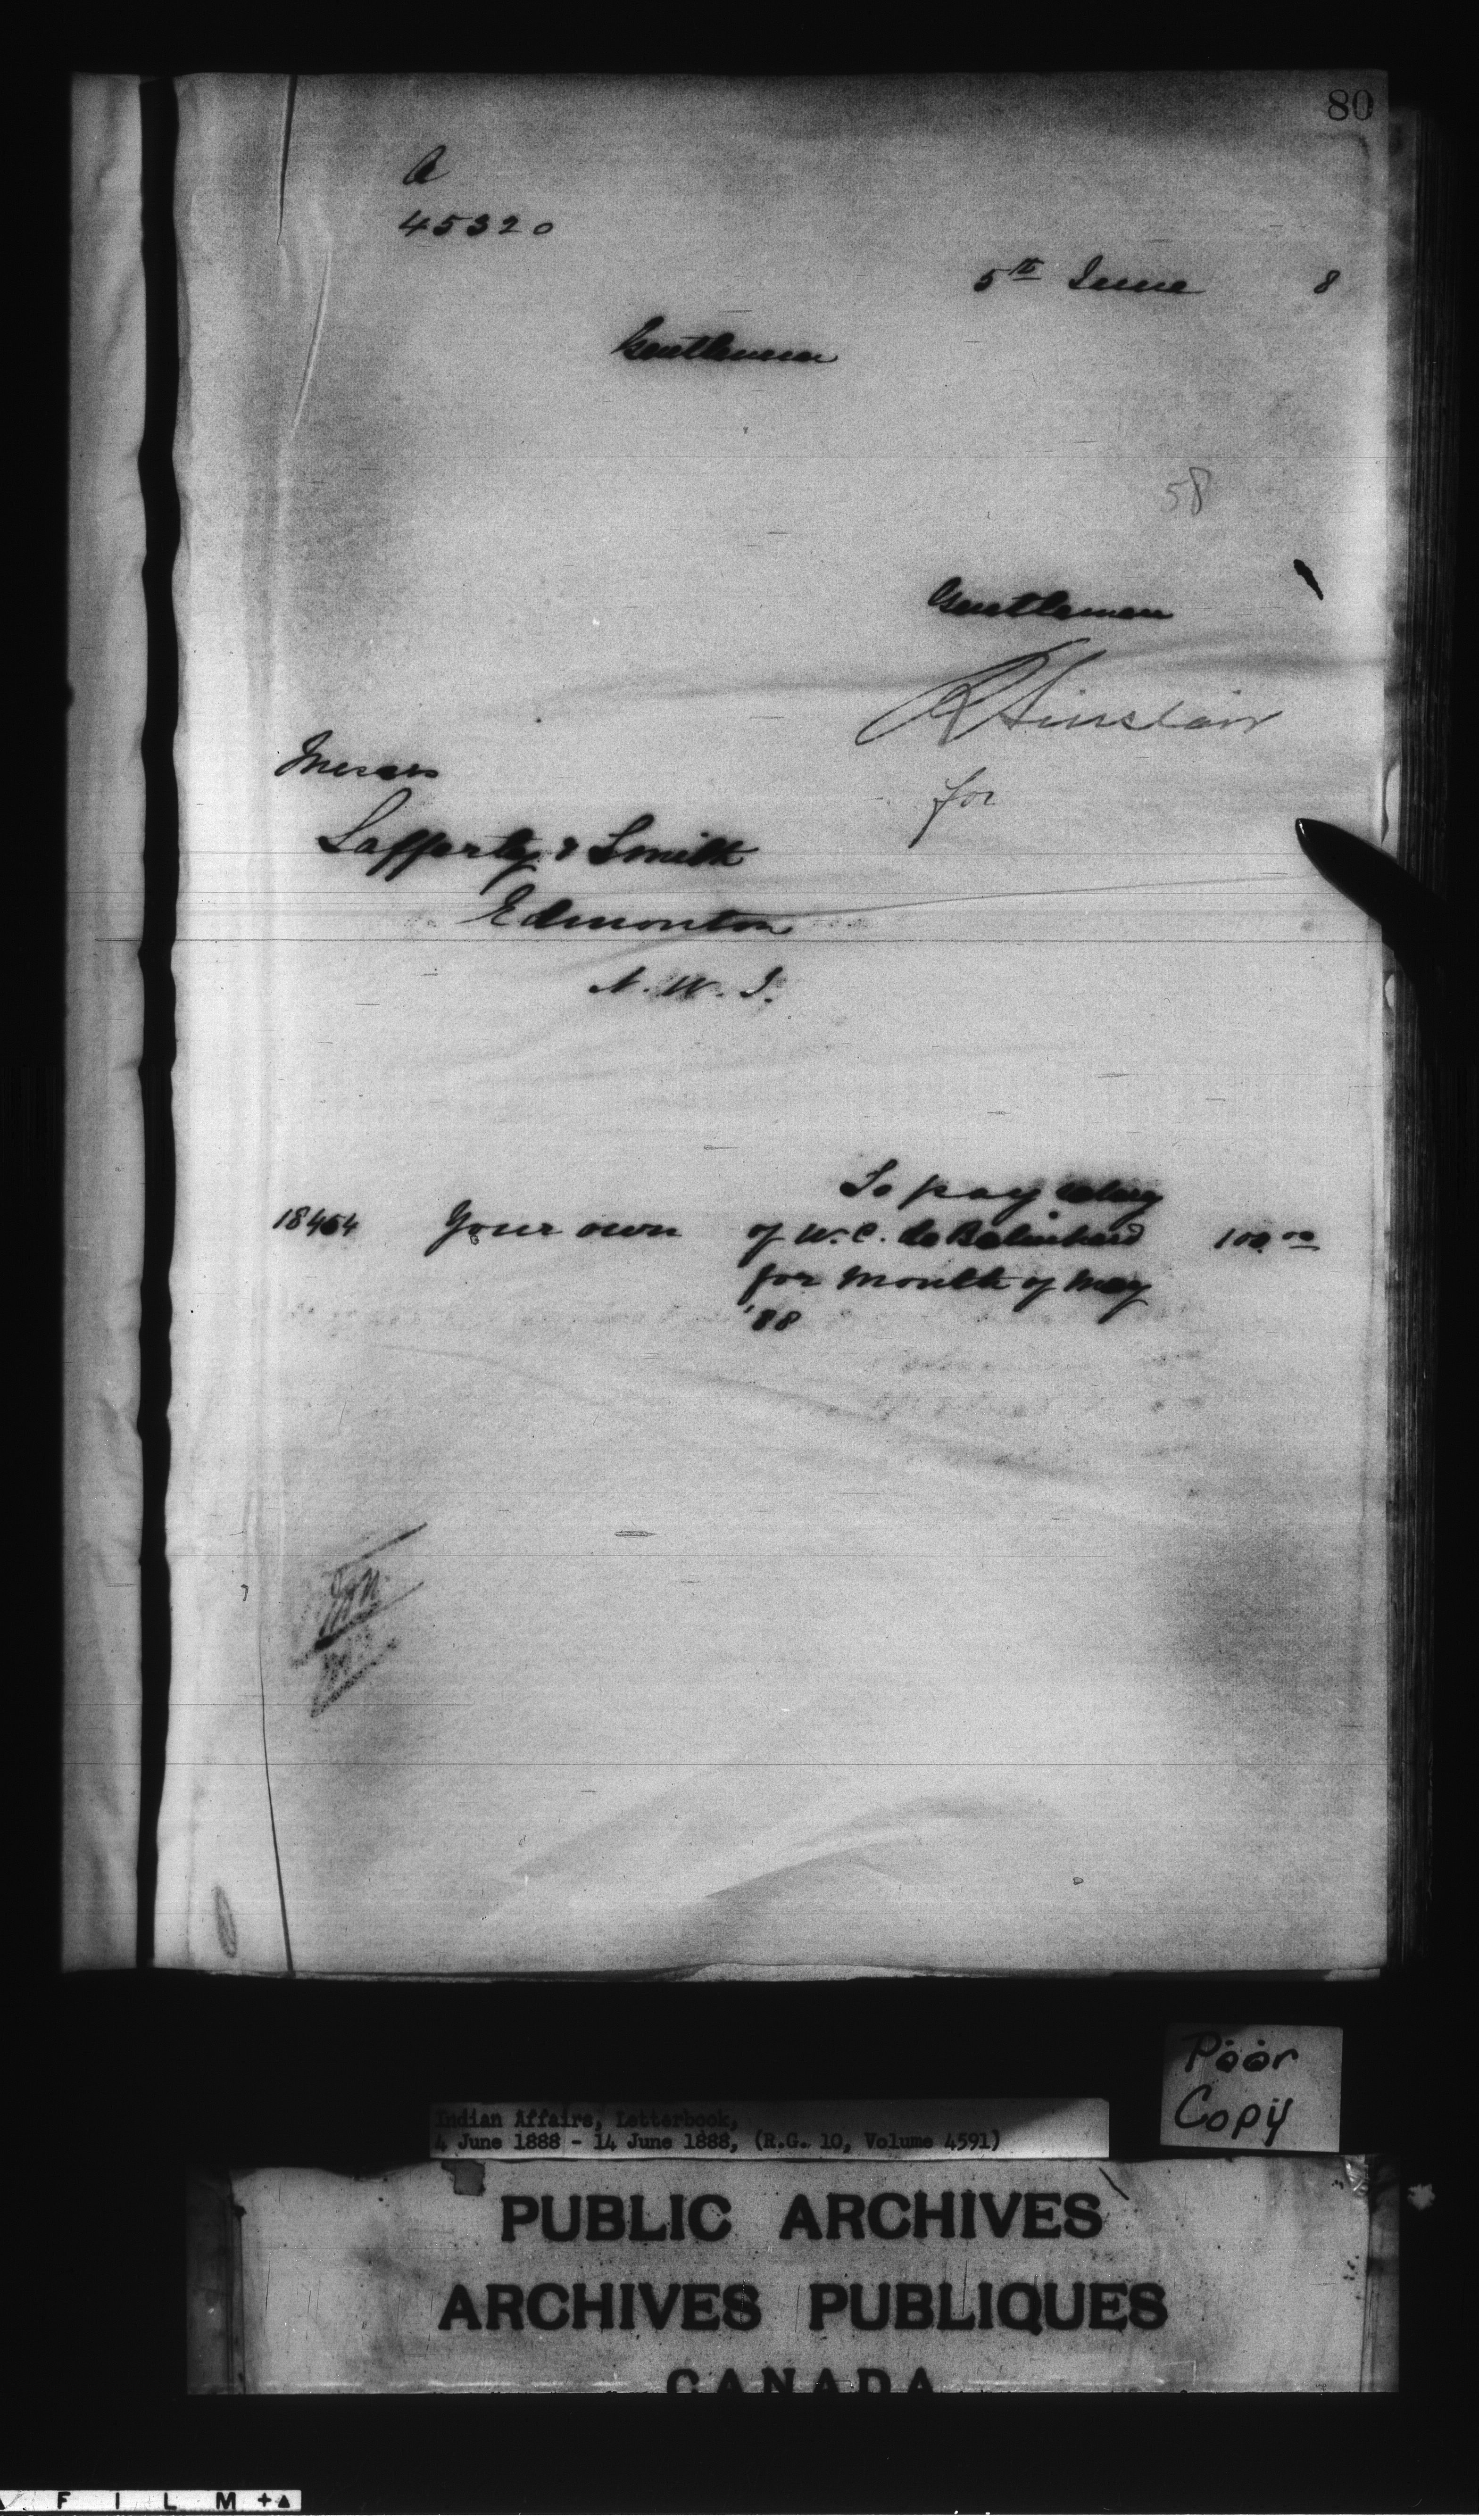 80
A
45320
5th June 8
Gentlemen
58
Gentlemen
R Sinclair
for
Messrs
Lafferty & Smith
Edmonton
N. W. T.
To pay salary
18454 Your own of W. C. de Balinhard 100.00
for month of May
'88
Poor
Copy
Indian Affairs, Letterbook,
4 June 1888 - 14 June 1888, (R.G. 10, Volume 4591)
PUBLIC ARCHIVES
ARCHIVES PUBLIQUES
CANADA
F I L M